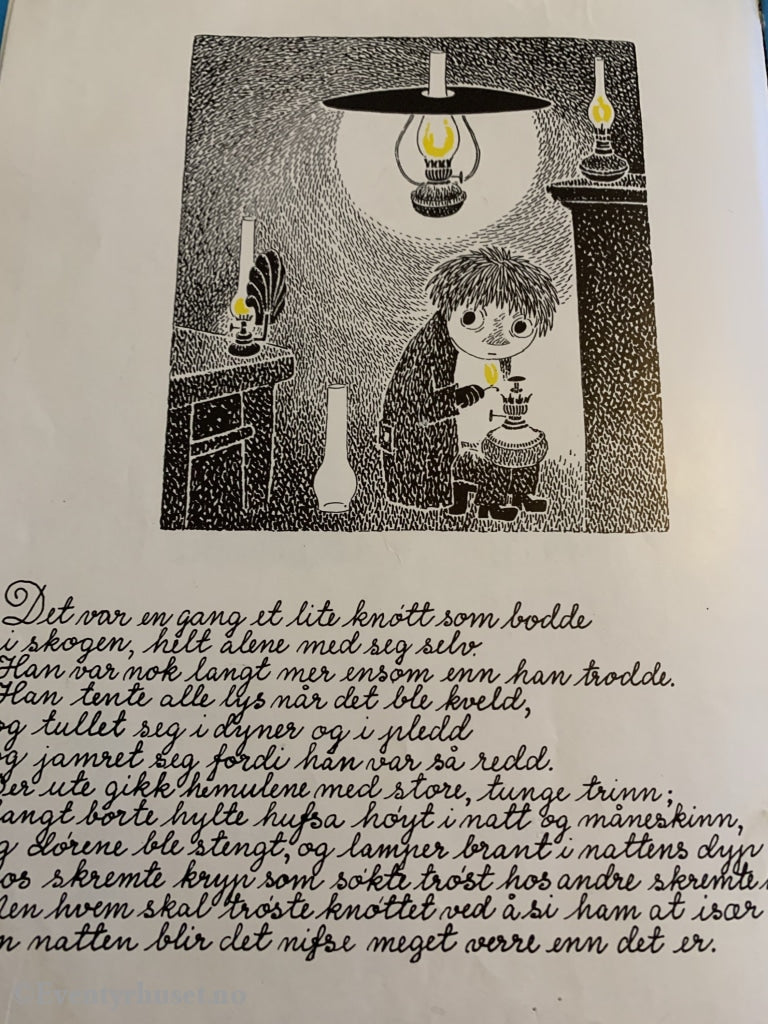 Det var en gang et lite knøtt som bodde
i skogen, helt alene med seg selv.
Han var nok langt mer ensom enn han trodde.
Han tente alle lys når det ble kveld,
og tullet seg i dyner og i pledd
og jamret seg fordi han var så redd.
Der ute gikk hemulene med store, tunge trinn;
langt borte hylte hufsa høyt i natt og måneskinn,
og dørene ble stengt, og lamper brant i nattens dyp
hos skremte kryp som søkte trøst hos andre skremte
Men hvem skal trøste knøttet ved å si ham at især
natten blir det nifse meget verre enn det er.
©Eventyrhuset.no